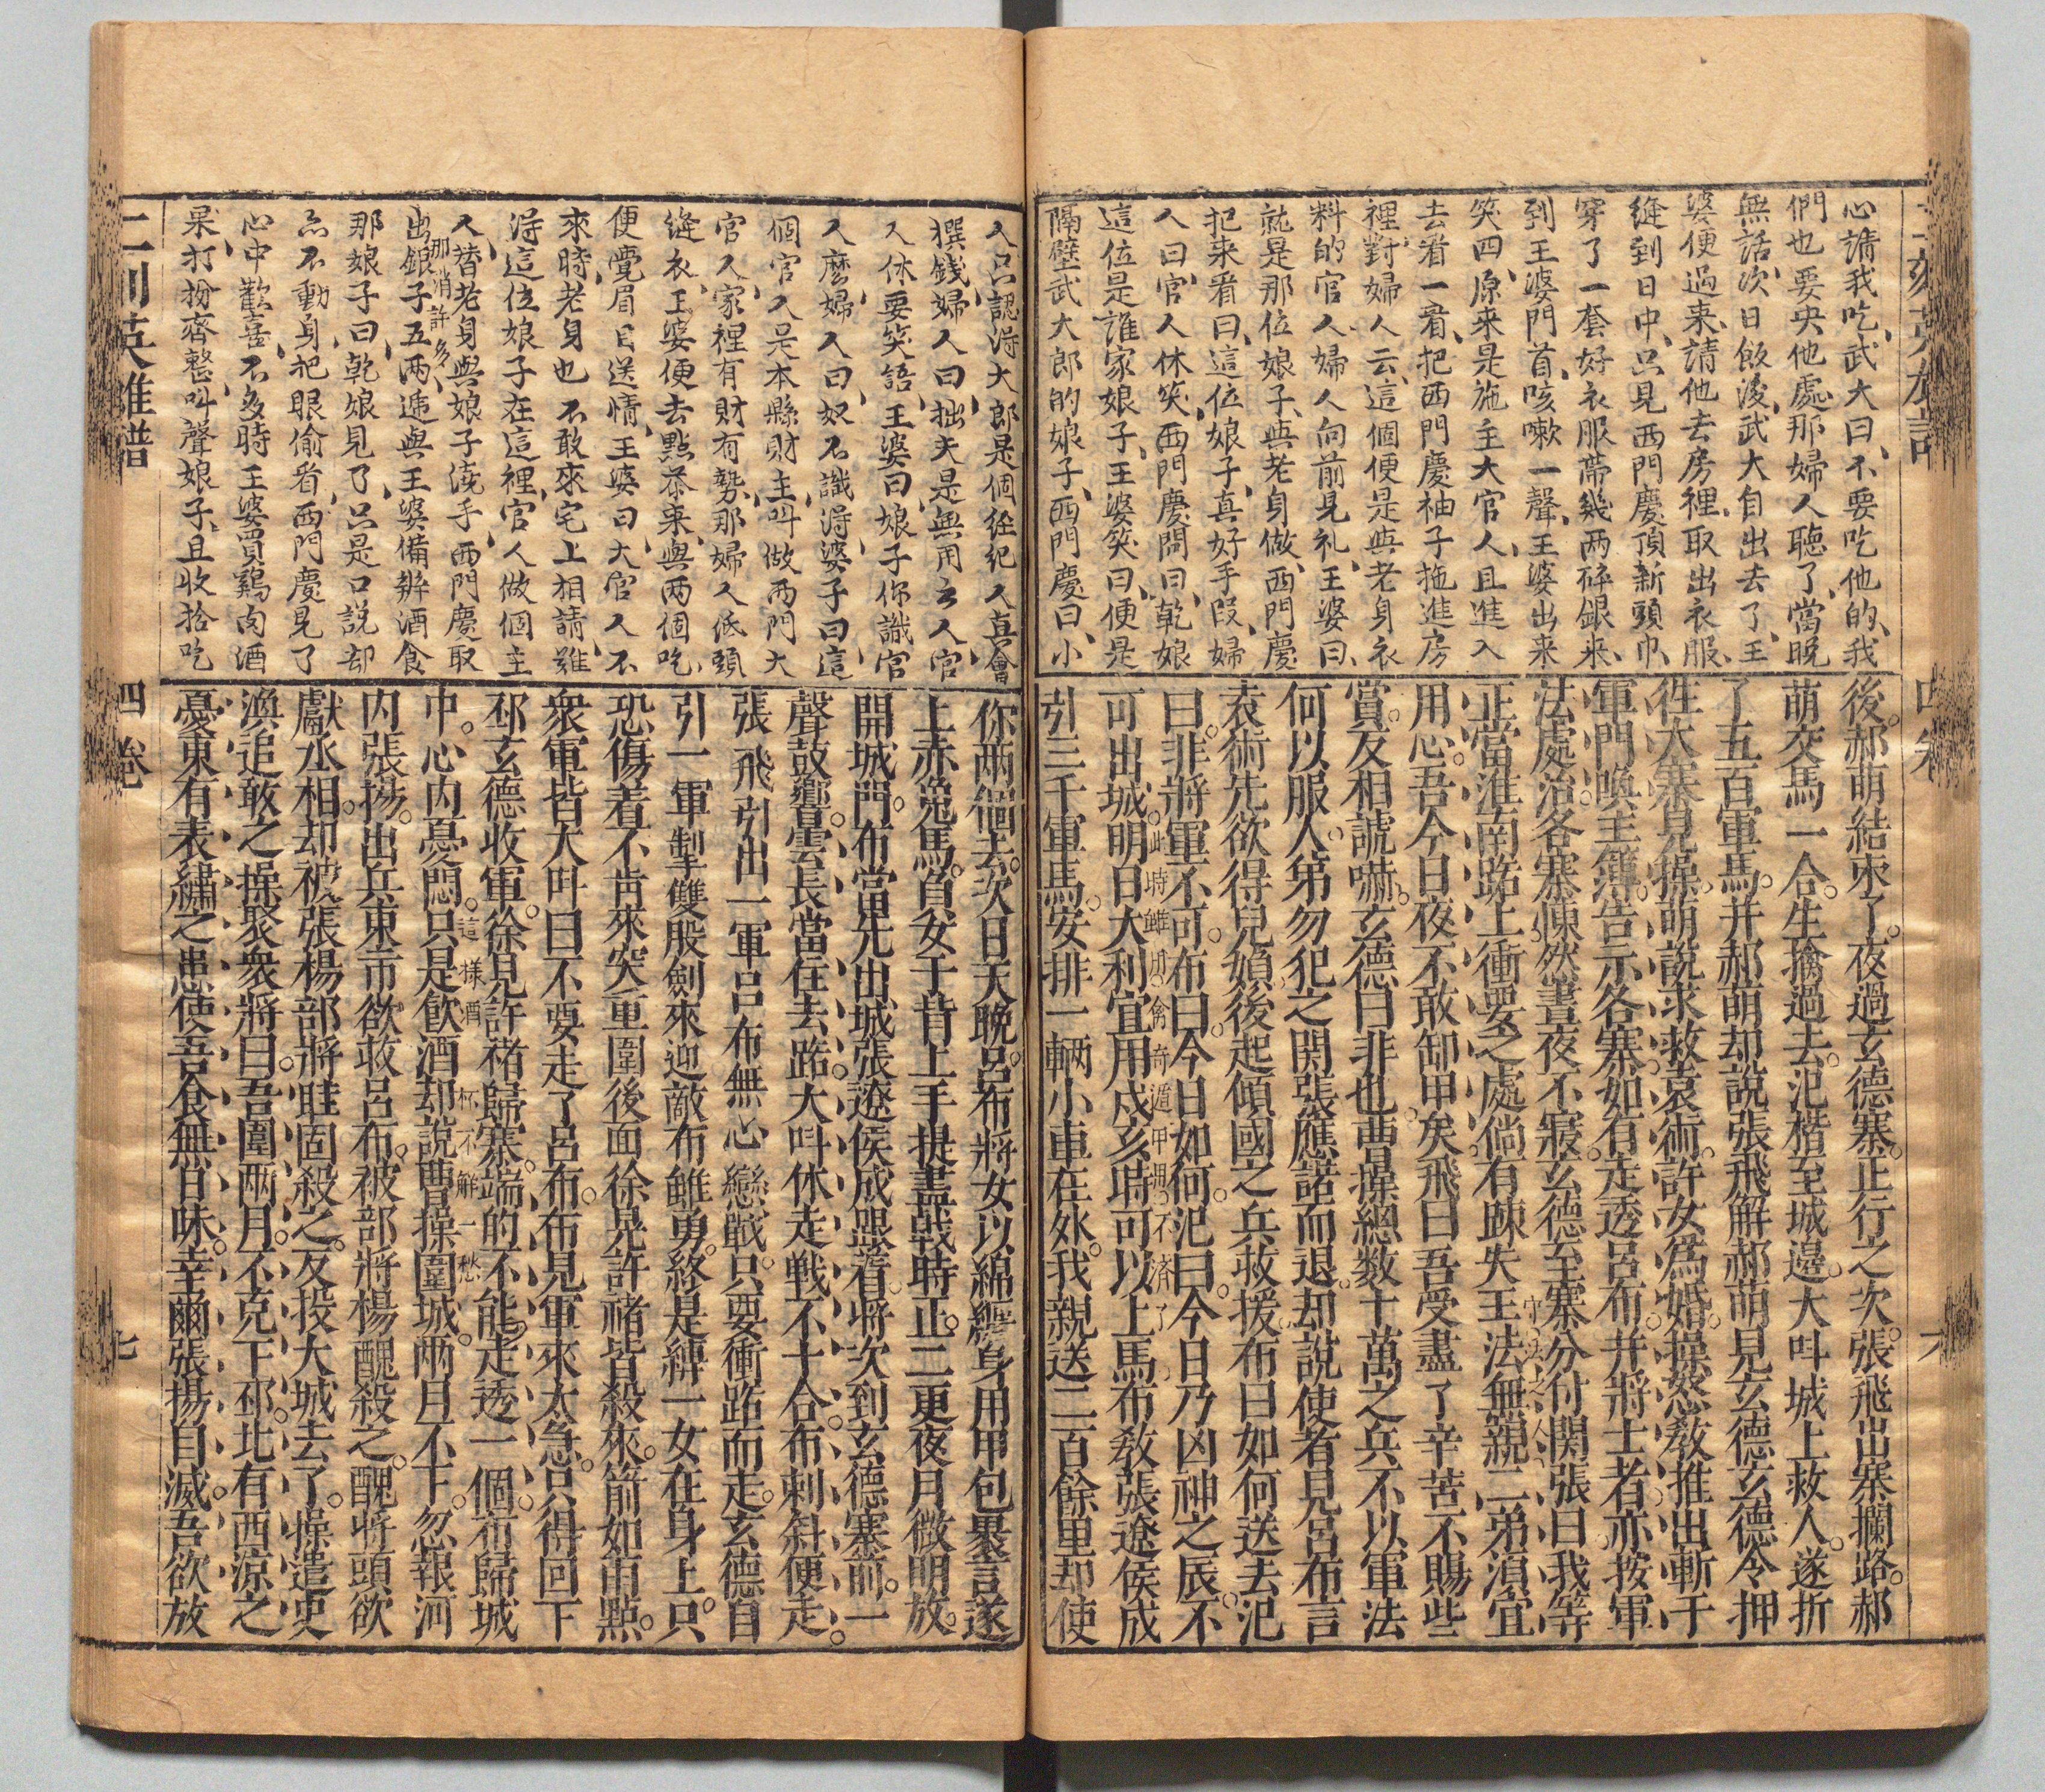 心請我吃武大曰不要吃他的我
們也要央他處那婦人聽了當晚
無話次日飯後武大自出去了王
婆便過來請他去房裡取出衣服
縫到日中只見西門慶頂新頭巾
穿了一套好衣服帶幾两碎銀来
到王婆門首咳嗽一聲王婆出来
笑四原来是施主大官人且進入
去看一看把西門慶袖子拖進房
裡對婦人云這個便是與老身衣
料的官人婦人向前見礼王婆曰
就是那位娘子與老身做西門慶
把来看曰這位娘子真好手段婦
人曰官人休笑西門慶問曰乾娘
這位是誰家娘子王婆笑曰便是
隔壁武大郎的娘子西門慶曰小
後郝萌結束了夜過玄德寨正行之次張飛出寨攔路郝
萌交馬一合生擒過去汜楷至城邊大呌城上救人遂折
了五百軍馬并郝萌却說張飛解郝萌見玄德玄德令押
徃大寨見操萌說求救袁術許女為婚操怒敎推出斬于
軍門喚主簿告示各寨如有走透呂布并將士者亦按軍
法處治各寨悚然晝夜不寢玄德至寨分付関張曰我等
正當淮南路上衝要之處倘有踈失王法無親二弟湏宜
用心吾今日夜不敢卸甲矣飛曰吾受盡了辛苦不賜些
賞反相諕嚇玄德曰非也曹操緫數十萬之兵不以軍法
何以服人弟勿犯之関張應諾而退却說使者見呂布言
袁術先欲得兒媍後起傾國之兵救援布曰如何送去汜
曰非將軍不可布曰今日如何汜曰今日乃凶神之辰不
可出城明日大利宜用戍亥時可以上馬布敎張遼侯成
此時雖用禽奇遁甲開不濟了
引三千軍馬安排一輛小車在外我親送二百餘里却使
二刻英雄譜
四卷
六
人只認得大郎是個經紀人真會
撰銭婦人曰拙夫是無用之人官
人休要笑語王婆曰娘子你識官
人麽婦人曰奴不識得婆子曰這
個官人是本縣財主呌做西門大
官人家裡有財有勢那婦人低頭
縫衣王婆便去點茶来與两個吃
便覺眉目送情王婆曰大官人不
來時老身也不敢來宅上相請難
得這位娘子在這裡官人做個主
人替老身與娘子澆手西門慶取
那消許多
出銀子五两逓與王婆備辦酒食
那娘子曰乾娘見了只是口說却
亦不動身把眼偷看西門慶見了
心中歡喜不多時王婆買鷄肉酒
果打扮齊整呌聲娘子且收拾吃
你两個去次日天晚呂布將女以綿纏身用甲包裹言遂
上赤兔馬負女于背上手提畫戟時止二更夜月微明放
開城門布當先出城張遼侯成跟着將次到玄德寨前一
聲鼓響雲長當住去路大呌休走戦不十合布刺斜便走
張飛引出一軍呂布無心戀戰只要衝路而走玄德自
引一軍掣雙股劍來迎敵布雖勇終是縳一女在身上只
恐傷着不肯來突重圍後面徐晃許禇皆殺來箭如雨點
衆軍皆大呌曰不要走了呂布布見軍來太急只得回下
邳玄德收軍徐晃許禇歸寨端的不能走透一個布歸城
中心内憂悶只是飲酒却說曹操圍城两月不下忽報河
這樣酒杯不解一愁
内張揚出兵東市欲救呂布被部將楊醜殺之醜將頭欲
獻丞相却被張楊部將眭固殺之反投大城去了操遣史
渙追敢之操聚衆將曰吾圍两月不克下邳北有西涼之
憂東有表繡之患使吾食無甘味幸爾張揚自滅吾欲放
二刻英雄譜
四卷
七